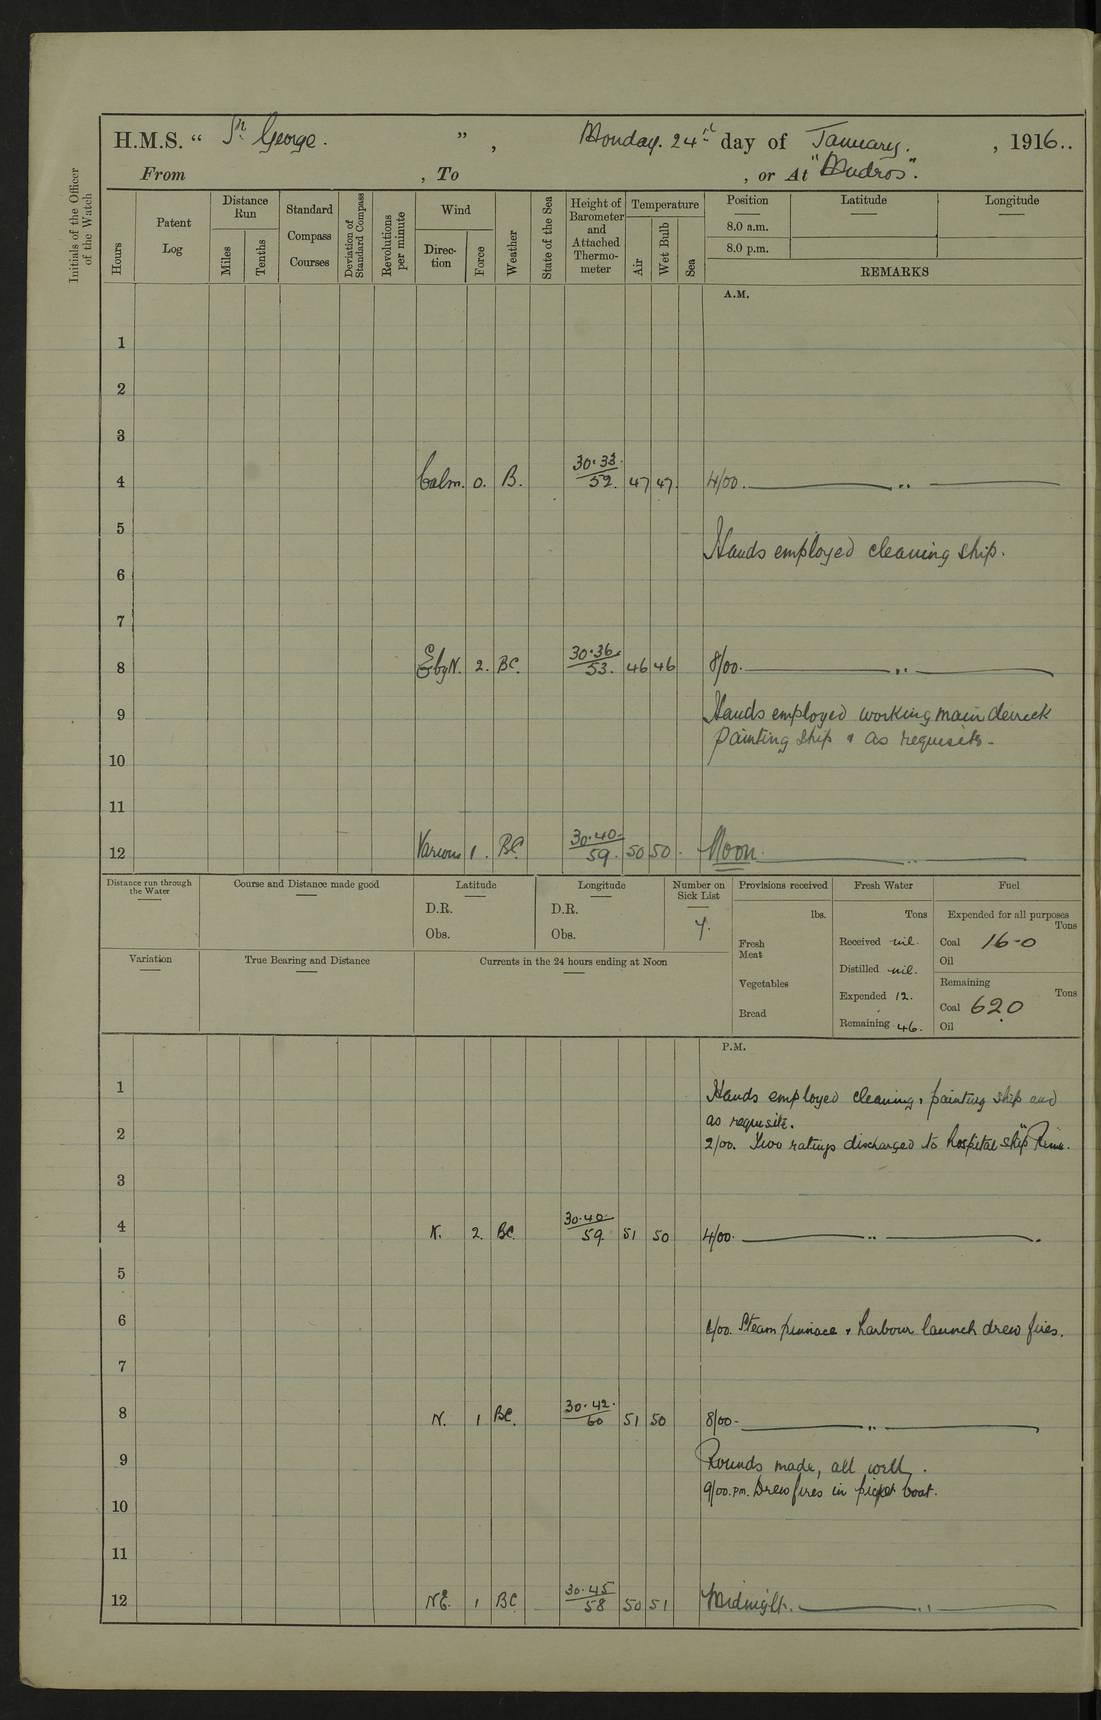 H.M.S. “ St George. ” , Monday. 24th day of January. , 1916..
From , To , or At "Mudros".
Initials of the Officer of the Watch
Hours
Patent Log
Distance Run
Miles
Tenths
Standard Compass Courses
Deviation of Standard Compass
Revolutions per minute
Wind
Direction
Force
Weather
State of the Sea
Height of Barometer and Attached Thermometer
Temperature
Air
Wet Bulb
Sea
Position
8.0 a.m.
8.0 p.m.
Latitude
Longitude
REMARKS
A.M.
1
2
3
4 Calm. 0. B. 30.33 / 52. 47 47. 4/00. ——— ,, ———
5 Hands employed cleaning ship.
6
7
8 E by N. 2. BC. 30.36 / 53. 46 46 8/00. ——— ,, ———
9 Hands employed working main derrick
painting ship & as requisite -
10
11
12 Various 1. BC. 30.40 / 59. 50 50. Noon. ——— ,, ———
Distance run through the Water
Course and Distance made good
Latitude
D.R.
Obs.
Longitude
D.R.
Obs.
Number on Sick List
Provisions received
lbs.
Fresh Meat
Vegetables
Bread
Fresh Water
Tons
Received nil.
Distilled nil.
Expended 12.
Remaining 46.
Fuel
Expended for all purposes
Tons
Coal 16-0
Oil
Remaining
Tons
Coal 620
Oil
Variation
True Bearing and Distance
Currents in the 24 hours ending at Noon
P.M.
1 Hands employed cleaning, painting ship and
as requisite.
2 2/00. Two ratings discharged to hospital ship
3
4 N. 2. BC. 30.40 / 59 51 50 4/00. ——— ,, ———
5
6 6/00. Steam pinnace & harbour launch drew fires.
7
8 N. 1 BC. 30.42 / 60 51 50 8/00- ——— ,, ———
9 Rounds made, all well.
9/00. pm. Drew fires in picket boat.
10
11
12 NE. 1 BC 30.45 / 58 50 51 Midnight. ——— ,, ———